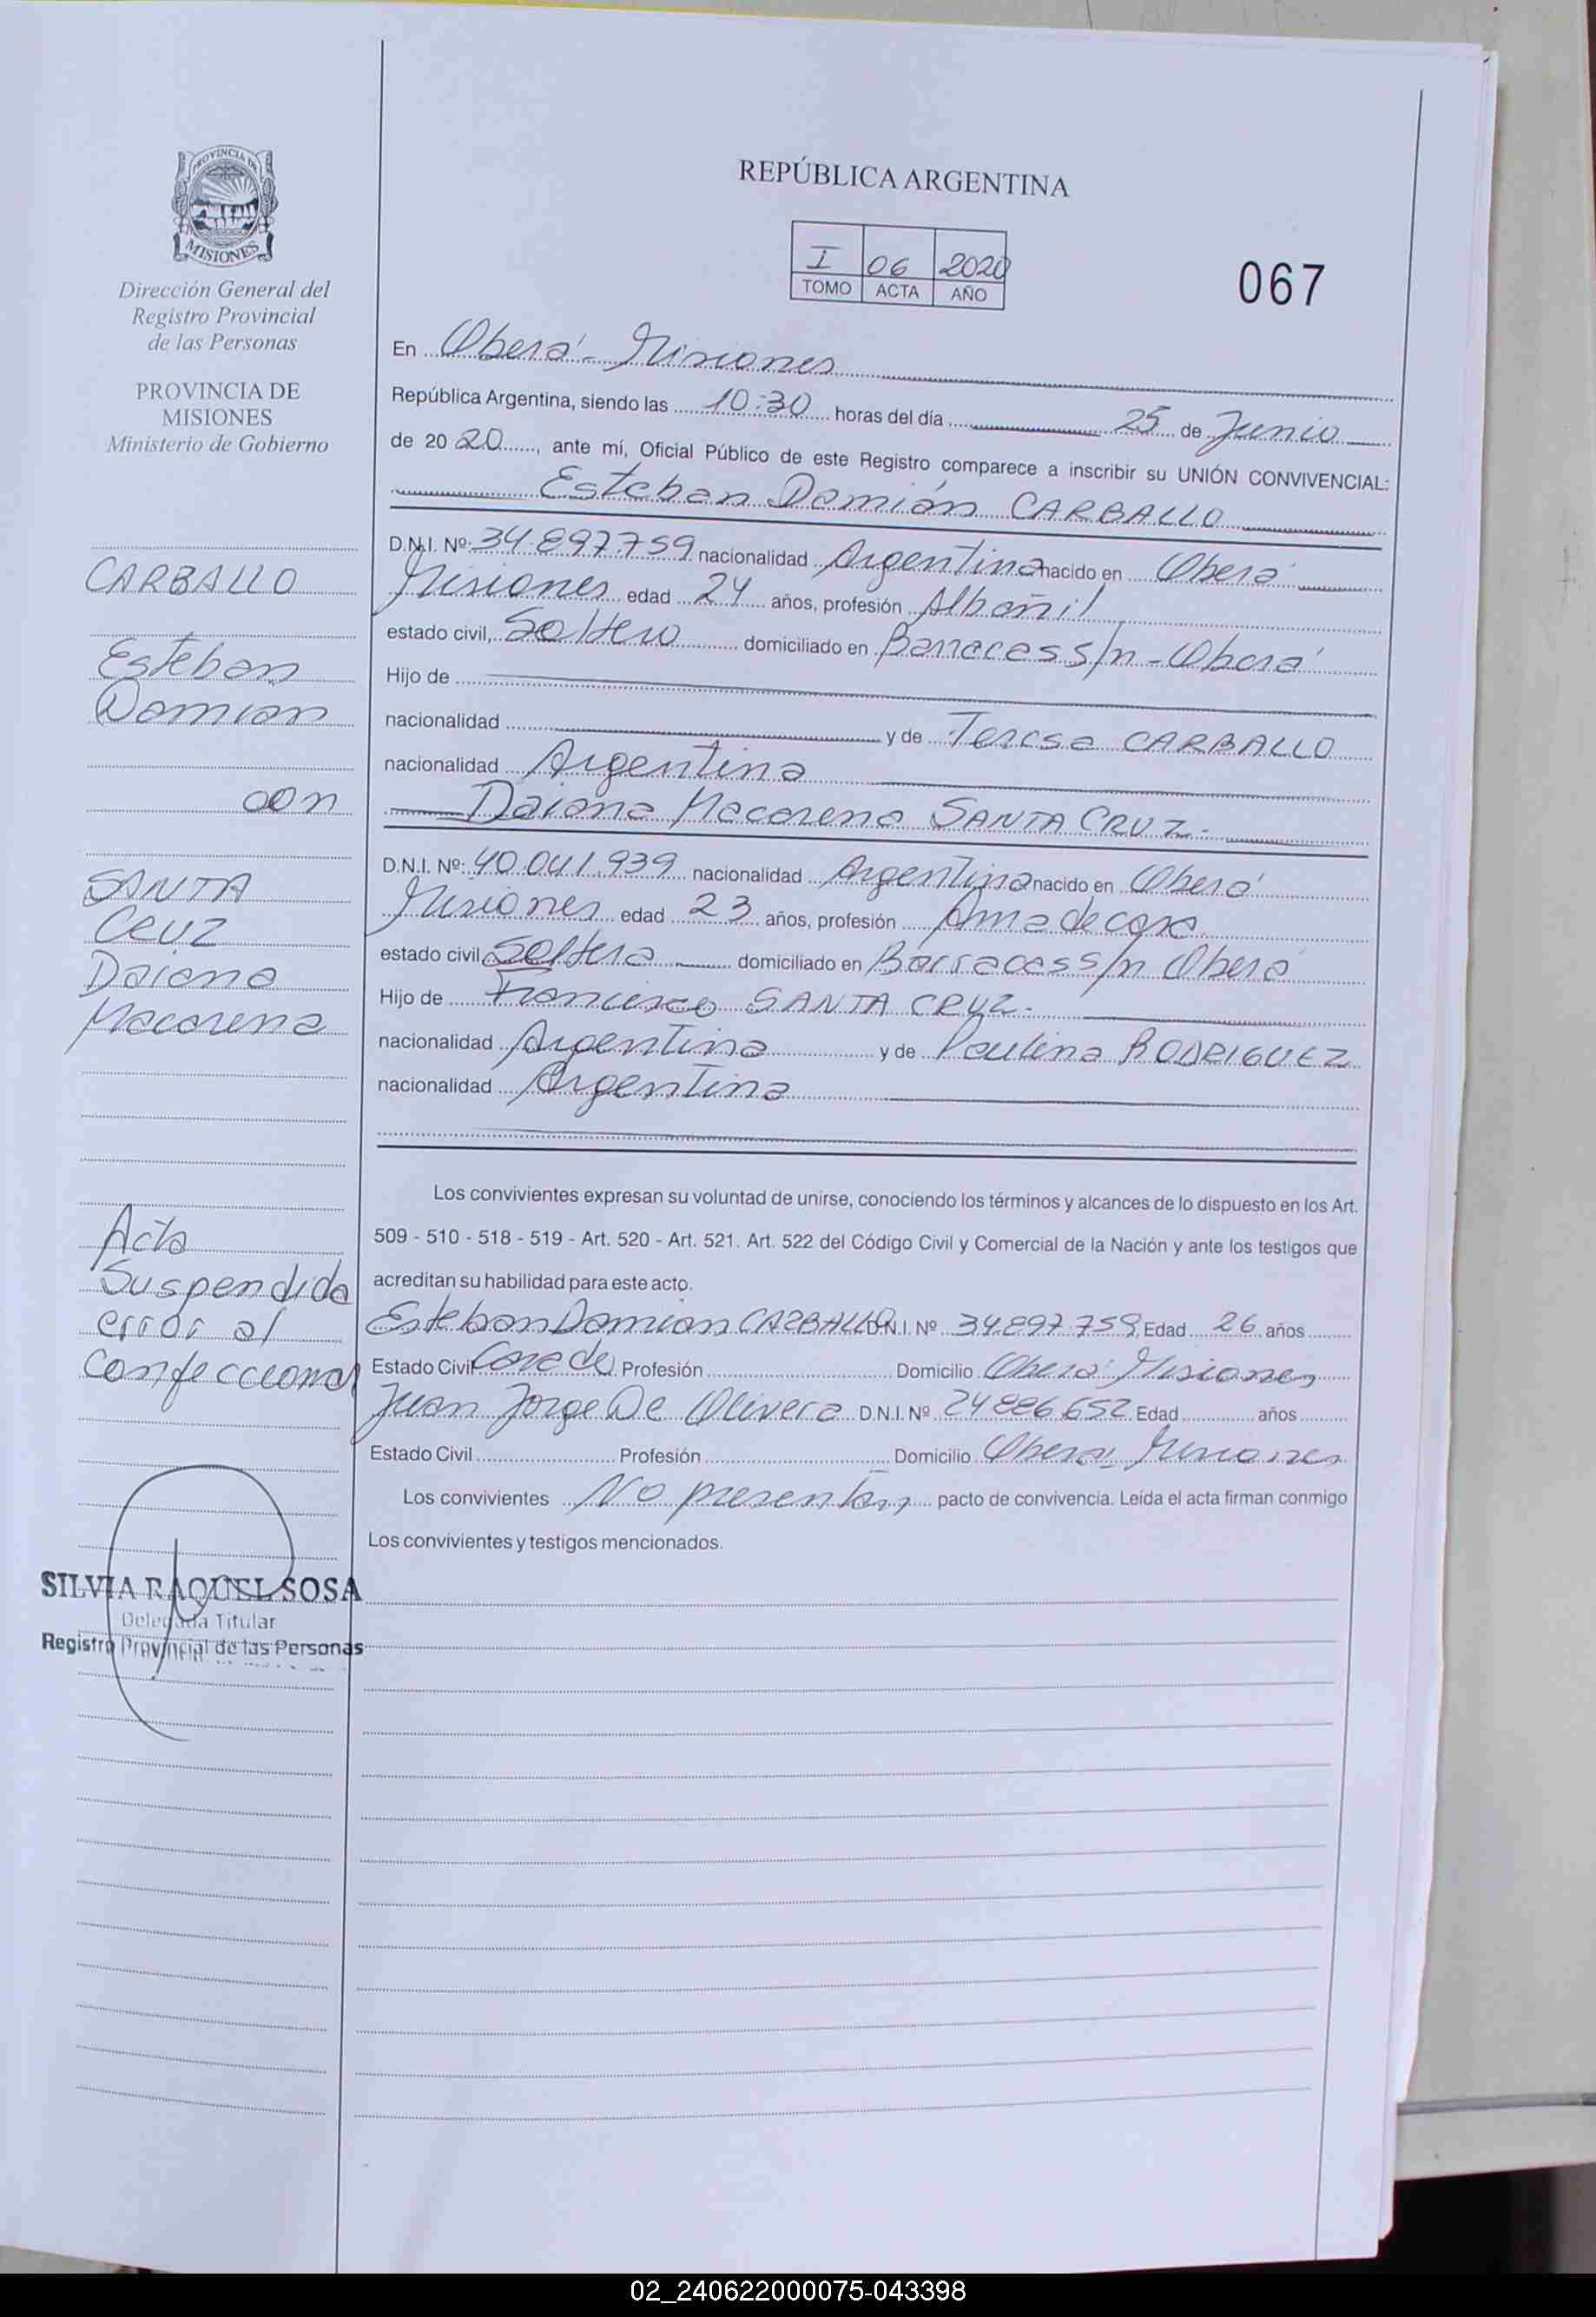 PROVINCIA DE
MISIONES
Dirección General del
Registro Provincial
de las Personas
PROVINCIA DE
MISIONES
Ministerio de Gobierno
CARBALLO
Esteban
Damian
con
SANTA
CRUZ
Daiana
Macarena
Acta
Suspendida
error al
confeccionar
SILVIA RAQUEL SOSA
Delegada Titular
Registro Provincial de las Personas
REPÚBLICA ARGENTINA
I 06 2020
TOMO ACTA AÑO
067
En Oberá - Misiones
República Argentina, siendo las 10:30 horas del día 25 de Junio
de 2020, ante mí, Oficial Público de este Registro comparece a inscribir su UNIÓN CONVIVENCIAL:
Esteban Damián CARBALLO
D.N.I. Nº: 34.897.759 nacionalidad Argentina nacido en Oberá
Misiones edad 24 años, profesión Albañil
estado civil, Soltero domiciliado en Barracas s/n - Oberá
Hijo de
nacionalidad y de Teresa CARBALLO
nacionalidad Argentina
Daiana Macarena SANTA CRUZ.
D.N.I. Nº: 40.041.939 nacionalidad Argentina nacido en Oberá
Misiones edad 23 años, profesión Ama de casa
estado civil Soltera domiciliado en Barracas s/n Oberá
Hijo de Francisco SANTA CRUZ.
nacionalidad Argentina y de Paulina RODRIGUEZ
nacionalidad Argentina
Los convivientes expresan su voluntad de unirse, conociendo los términos y alcances de lo dispuesto en los Art.
509 - 510 - 518 - 519 - Art. 520 - Art. 521. Art. 522 del Código Civil y Comercial de la Nación y ante los testigos que
acreditan su habilidad para este acto.
Esteban Damian CARBALLO D.N.I. Nº 34.897.759 Edad 26 años
Estado Civil Profesión Domicilio Oberá Misiones
Juan Jorge De Olivera D.N.I. Nº 24.886.652 Edad años
Estado Civil Profesión Domicilio Oberá - Misiones
Los convivientes No presentan pacto de convivencia. Leída el acta firman conmigo
Los convivientes y testigos mencionados.
02_240622000075-043398